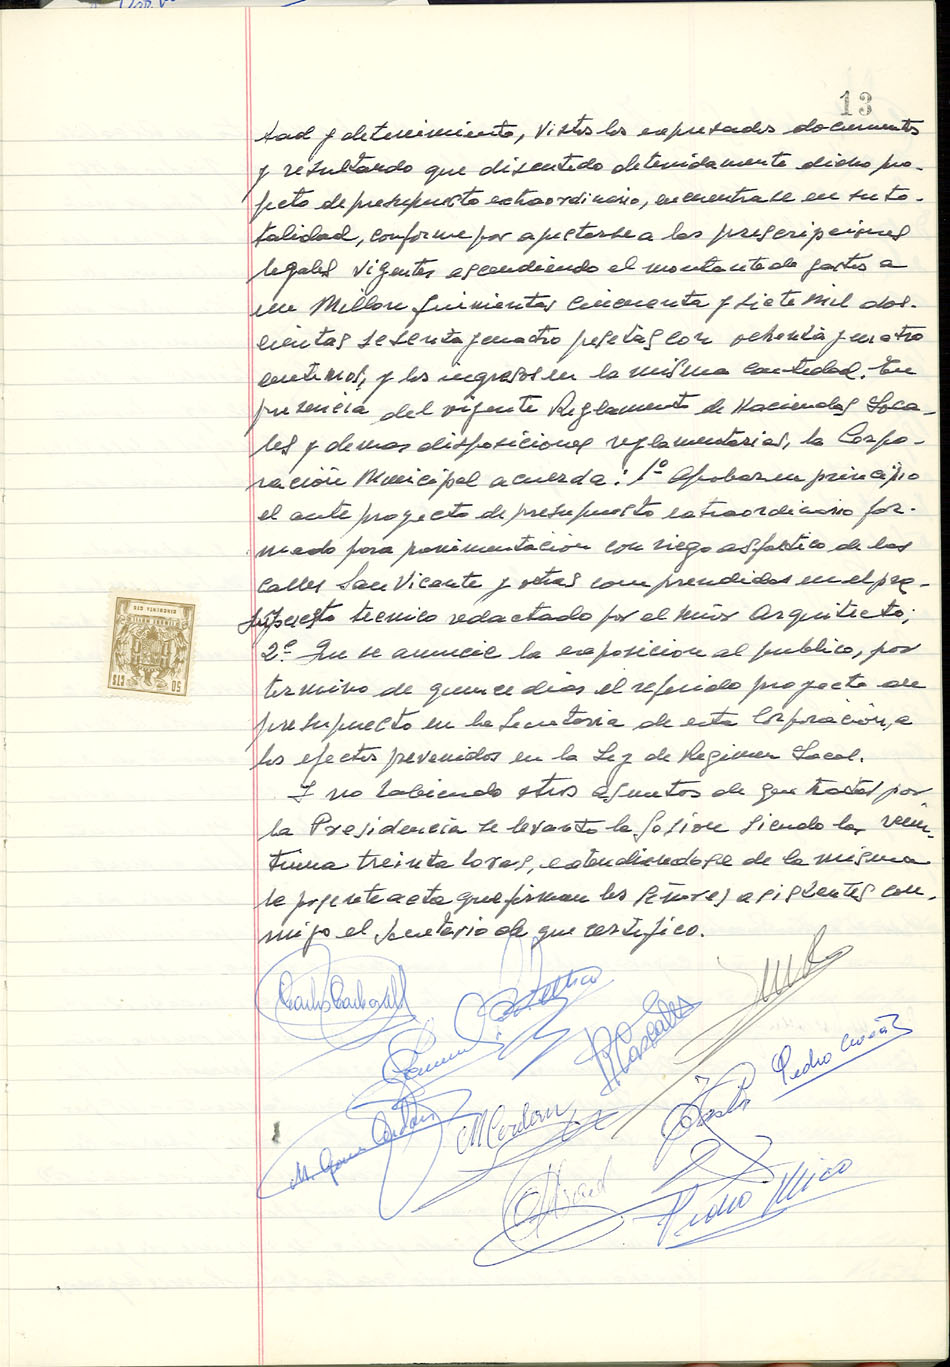 13
tad y detenimiento, vistos los expresados documentos
y resultando que discutido detenidamente dicho pro-
yecto de presupuesto extraordinario, encuentrase en su to-
talidad, conforme por ajustarse a las prescripciones
legales vigentes ascendiendo el montante de gastos a
un Millon quinientas cincuenta y siete mil dos-
cientas sesenta y cuatro pesetas con ochenta y cuatro
centimos, y los ingresos en la misma cantidad. En
presencia del vigente Reglamento de Haciendas Loca-
les y demas disposiciones reglamentarias, la Corpo-
ración Municipal acuerda: 1º Aprobar en principio
el ante proyecto de presupuesto extraordinario for-
mado para pavimentacion con riego asfaltico de las
calles San Vicente y otras comprendidas en el pre-
supuesto tecnico redactado por el Arquitecto;
2º Que se anuncie la exposicion al publico, por
termino de quince dias el referido proyecto de
presupuesto en la Secretaria de esta Corporación, a
los efectos prevenidos en la Ley de Regimen Local.
Y no habiendo otros asuntos de que tratar por
la Presidencia se levanto la sesion siendo las vein-
tiuna treinta horas, extendiendose de la misma
la presente acta que firman los señores asistentes con-
migo el Secretario de que certifico.
50 CTS
CINCUENTA CTS
Carlos Carbonell
Pascales
Pedro
M. Cerdan
Pedro Mico